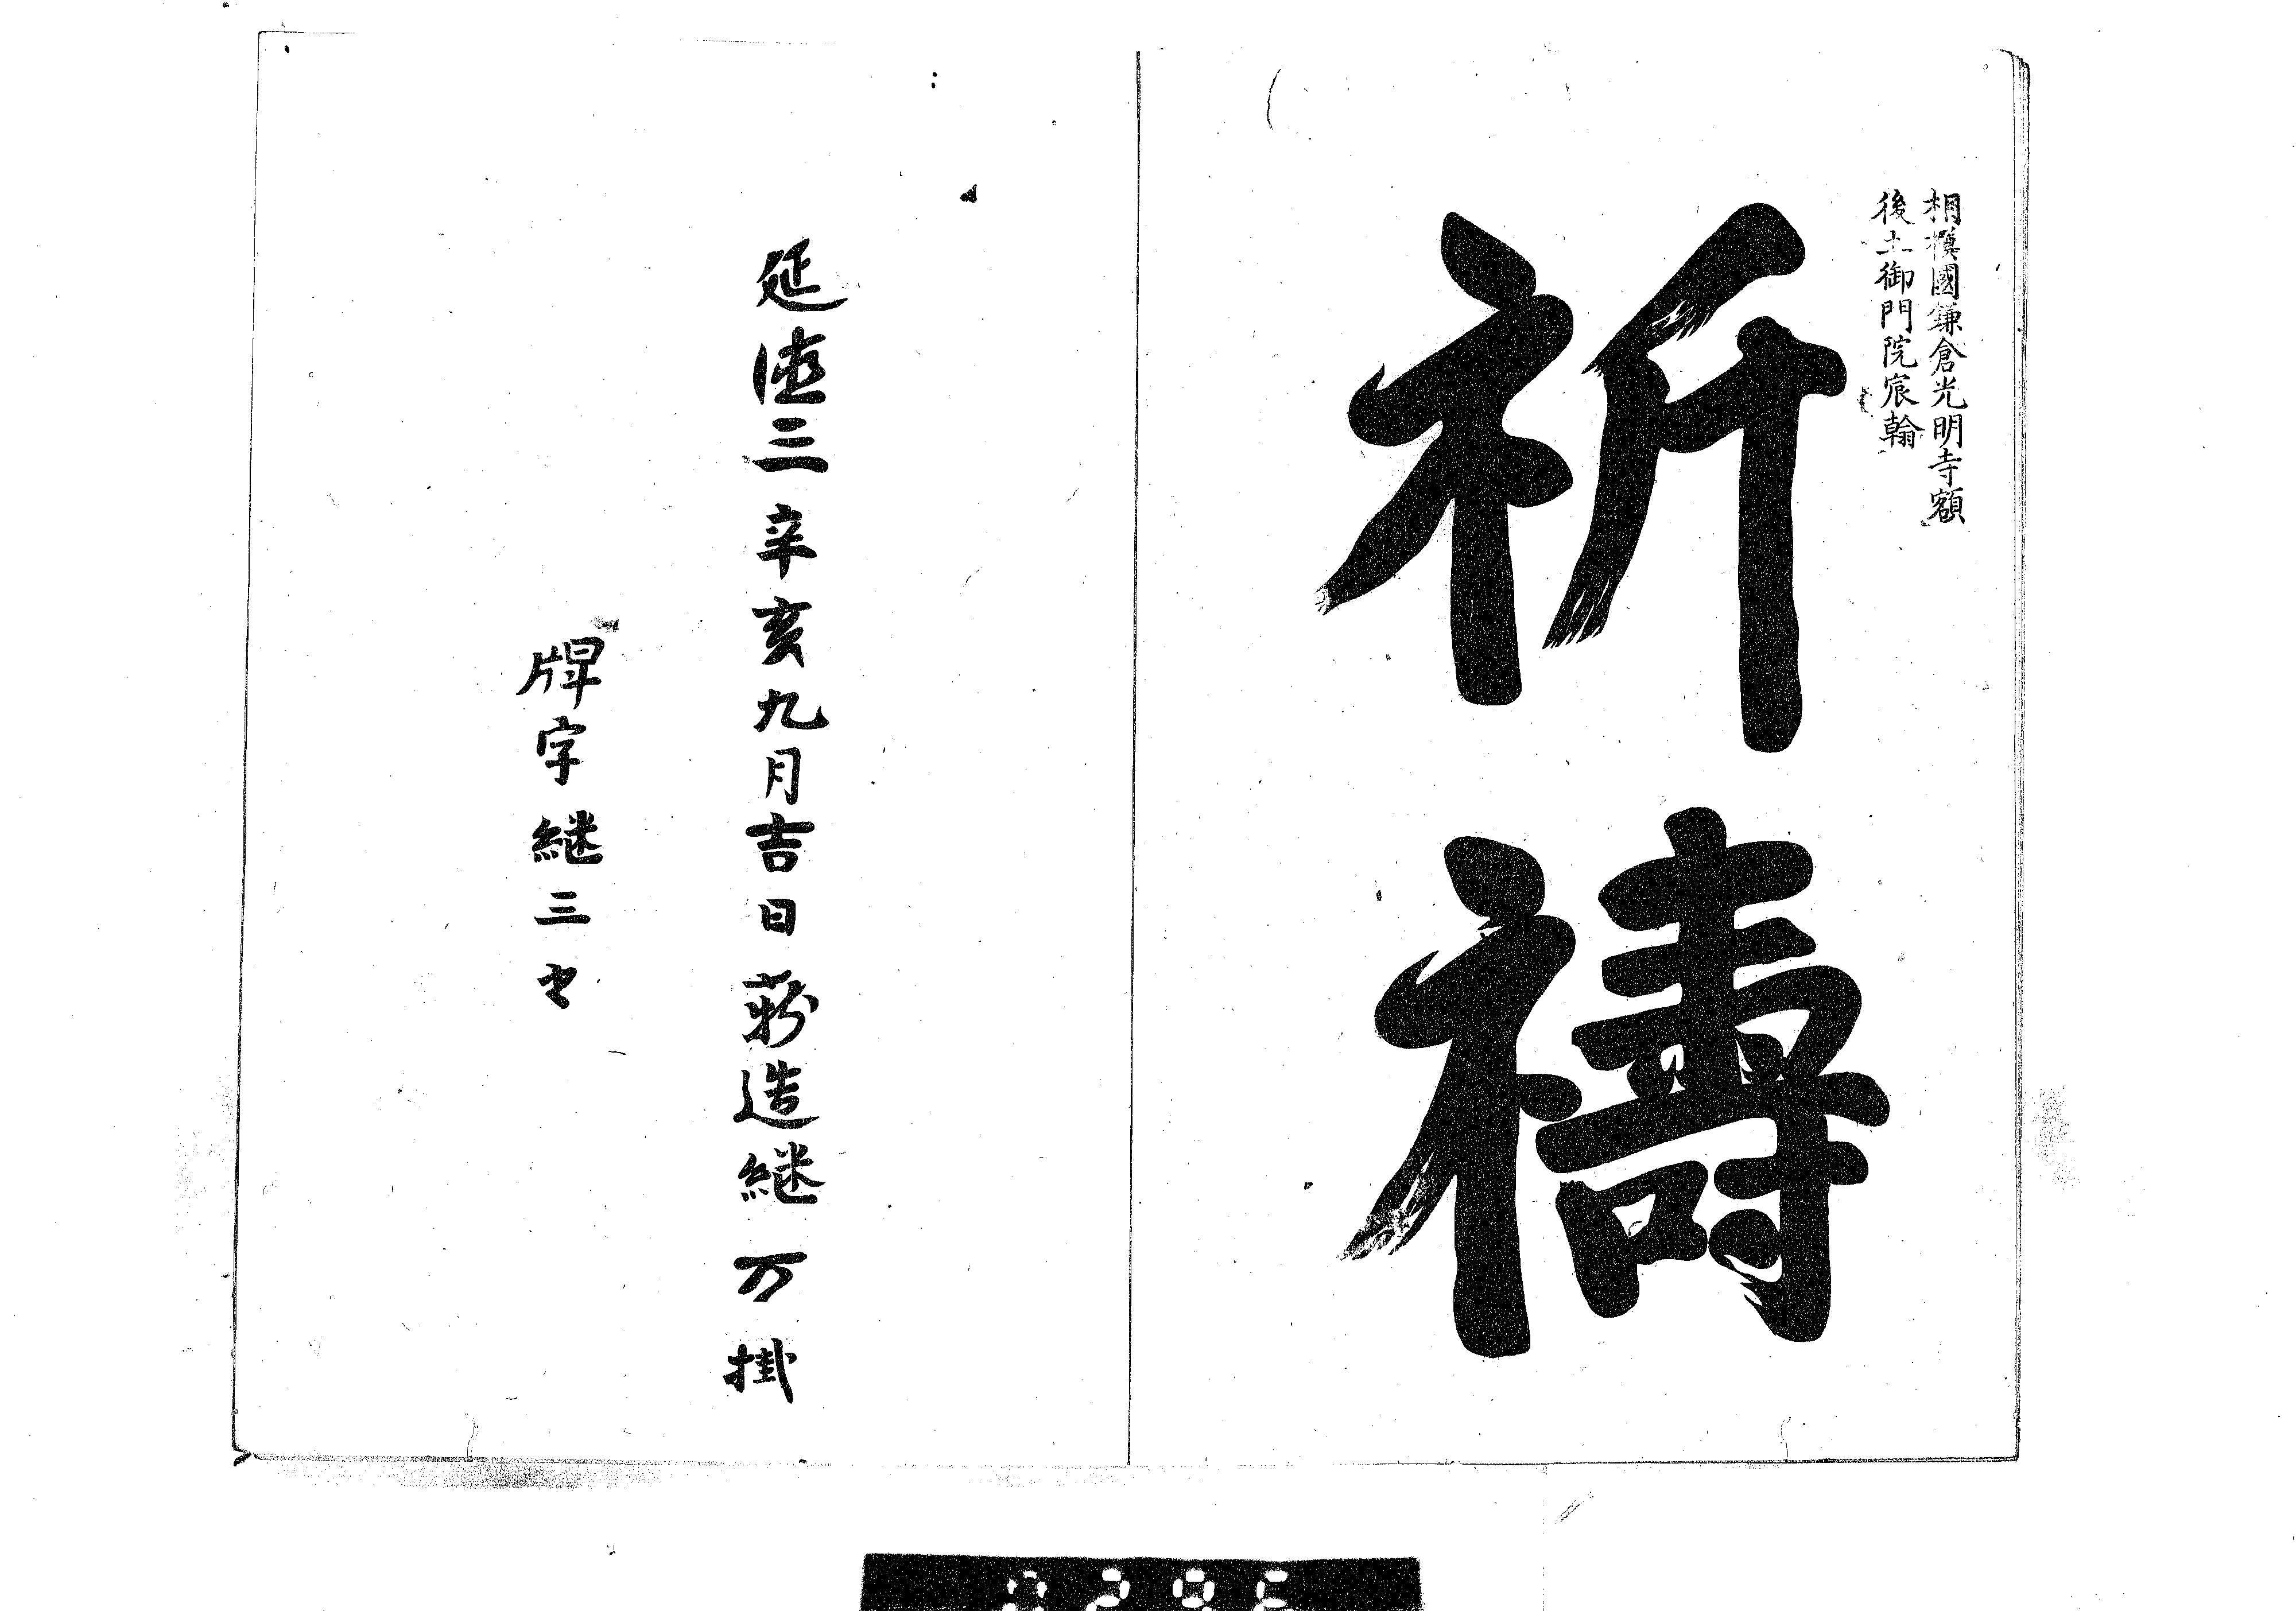 相模國鎌倉光明寺額
後土御門院宸翰
祈禱
延徳三辛亥九月吉日新造継万掛
牌字継三